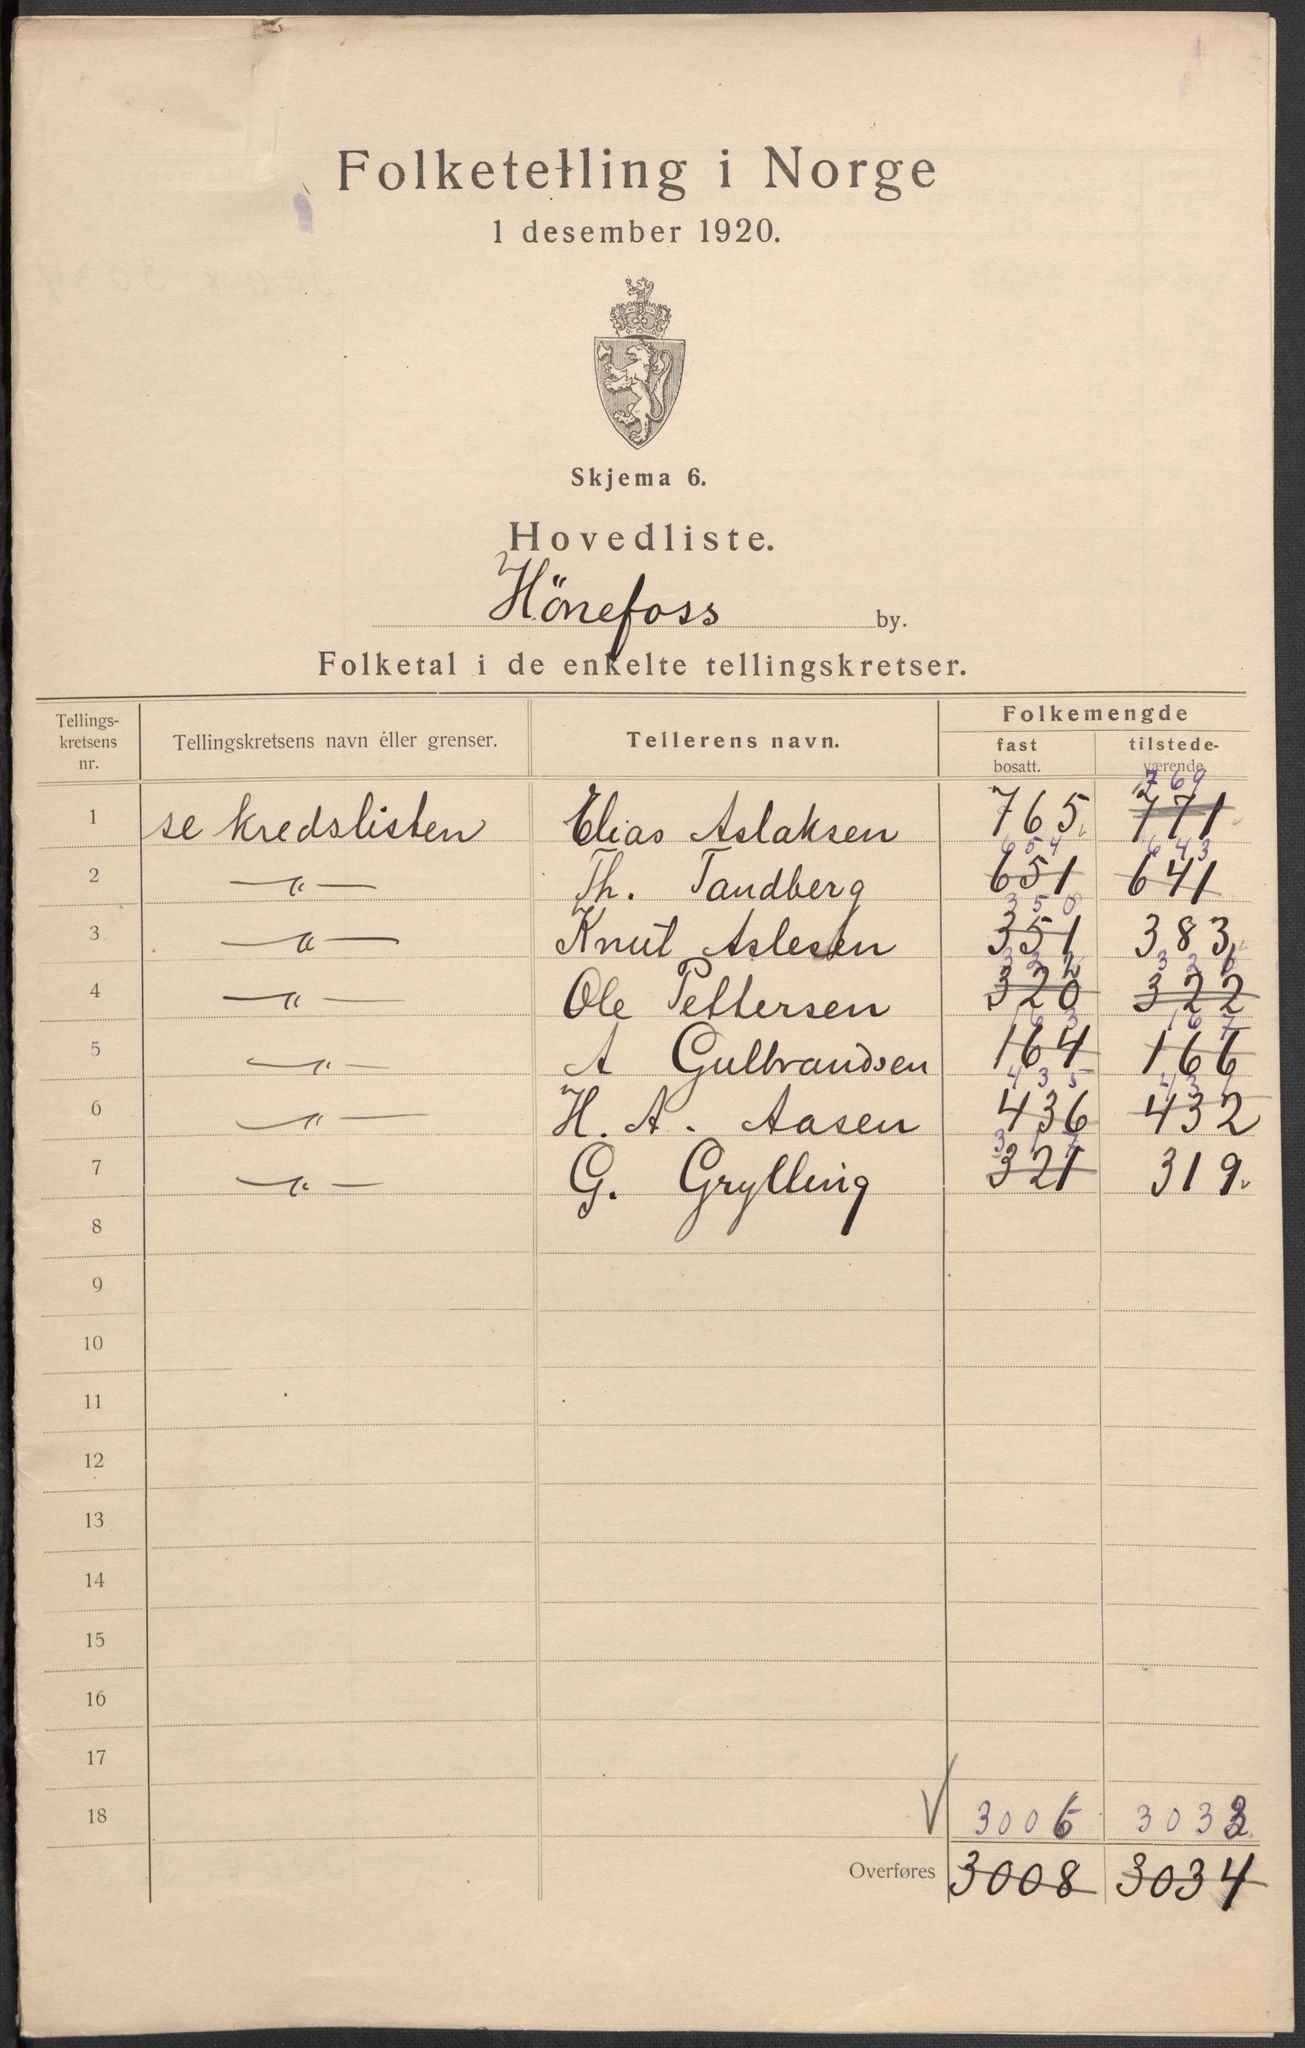 Folketelling i Norge
1 desember 1920.
Skjema 6.
Hovedliste.
Hönefoss by.
Folketal i de enkelte tellingskretser.
Tellings-kretsens nr. Tellingskretsens navn eller grenser. Tellerens navn. Folkemengde
fast bosatt. tilstede-værende
769
1 se kredslisten Elias Aslaksen 765. 771
654 643
2 —〃— Th. Tandberg 651 641
350
3 —〃— Knut Aslesen 351 383
322 326
4 —〃— Ole Pettersen 320 322
163 167
5 —〃— A Gulbrandsen 164 166
435
6 —〃— H. A. Aasen 436 432
317
7 —〃— G. Grylling 321 319.
8
9
10
11
12
13
14
15
16
17
18 3006 3033
Overføres 3008 3034